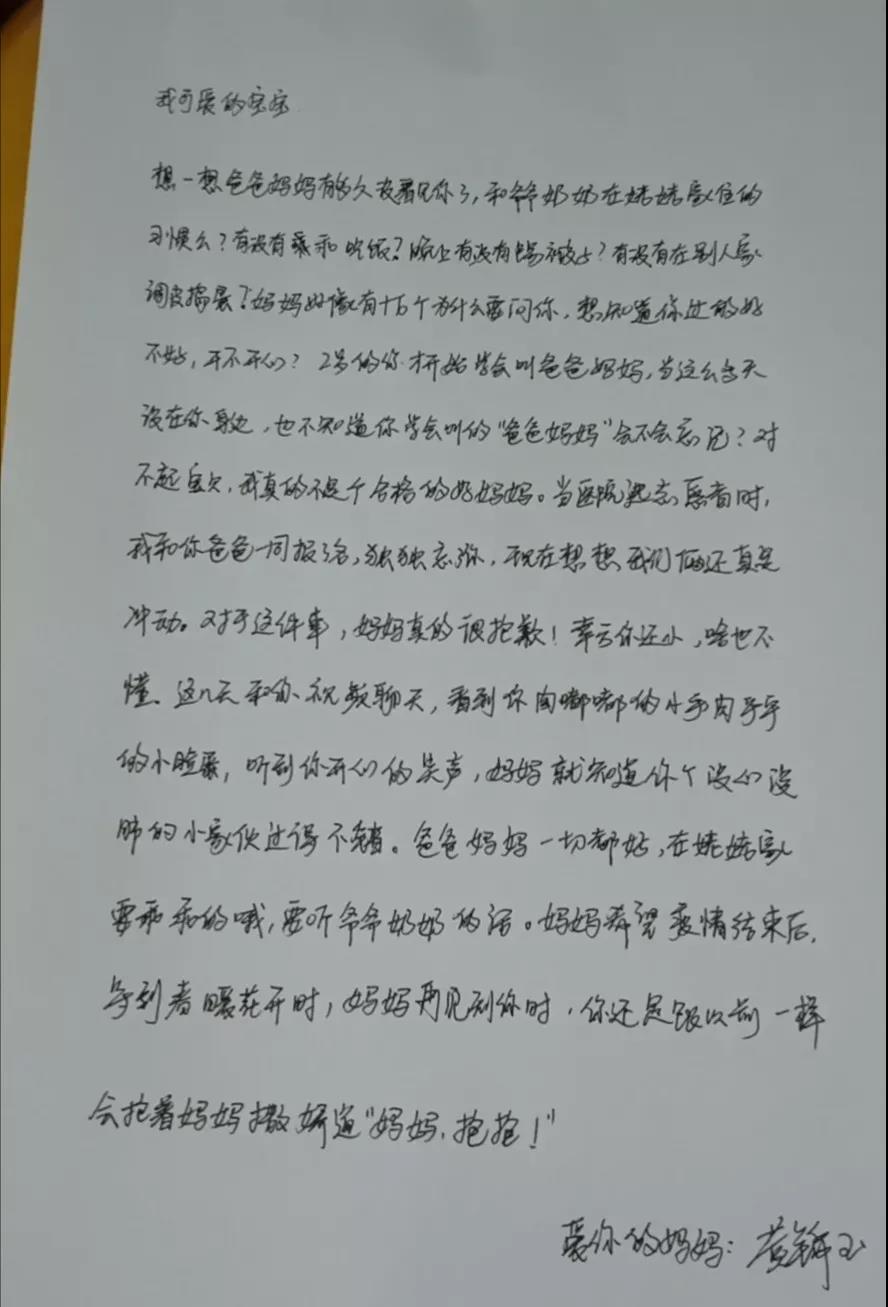 我可爱的宝宝
想一想爸爸妈妈有多久没看见你了，和爷爷奶奶在姥姥家住的
习惯么？有没有乖乖吃饭？晚上有没有踢被子？有没有在别人家
调皮捣蛋？妈妈好像有十万个为什么要问你，想知道你过的好
不好，开不开心？2岁的你才开始学会叫爸爸妈妈，当这么多天
没在你身边，也不知道你学会叫的“爸爸妈妈”会不会忘记？对
不起宝贝，我真的不是个合格的好妈妈。当医院号志愿者时，
我和你爸爸一同报名，独独忘弥，现在想想我们俩还真是
冲动。对于这件事，妈妈真的很抱歉！幸亏你还小，啥也不
懂。这几天和你视频聊天，看到你肉嘟嘟的小手肉乎乎
的小脸蛋，听到你开心的笑声，妈妈就知道你个没心没
肺的小家伙过得不错。爸爸妈妈一切都好，在姥姥家
要乖乖的哦，要听爷爷奶奶的话。妈妈希望疫情结束后，
等到春暖花开时，妈妈再见到你时，你还是跟以前一样
会抱着妈妈撒娇道“妈妈，抱抱！”
爱你的妈妈：黄 玉